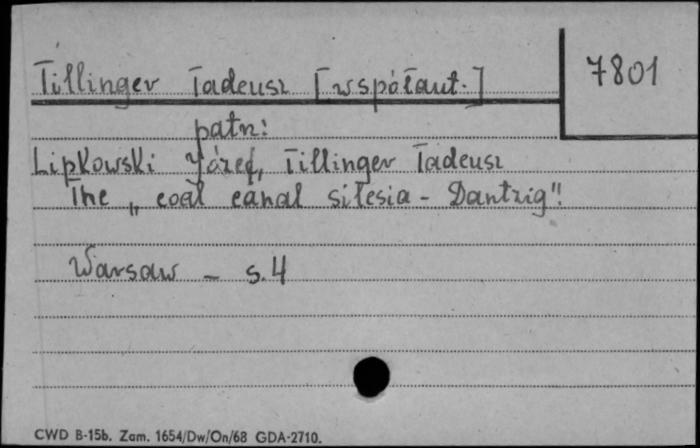 Tillinger Tadeusz [współaut.] 7801
patrz:
Lipkowski Józef, Tillinger Tadeusz
The „ coal canal silesia - Dantzig".
Warsaw - s.4
CWD B-15b. Zam. 1654/Dw/On/68 GDA-2710.